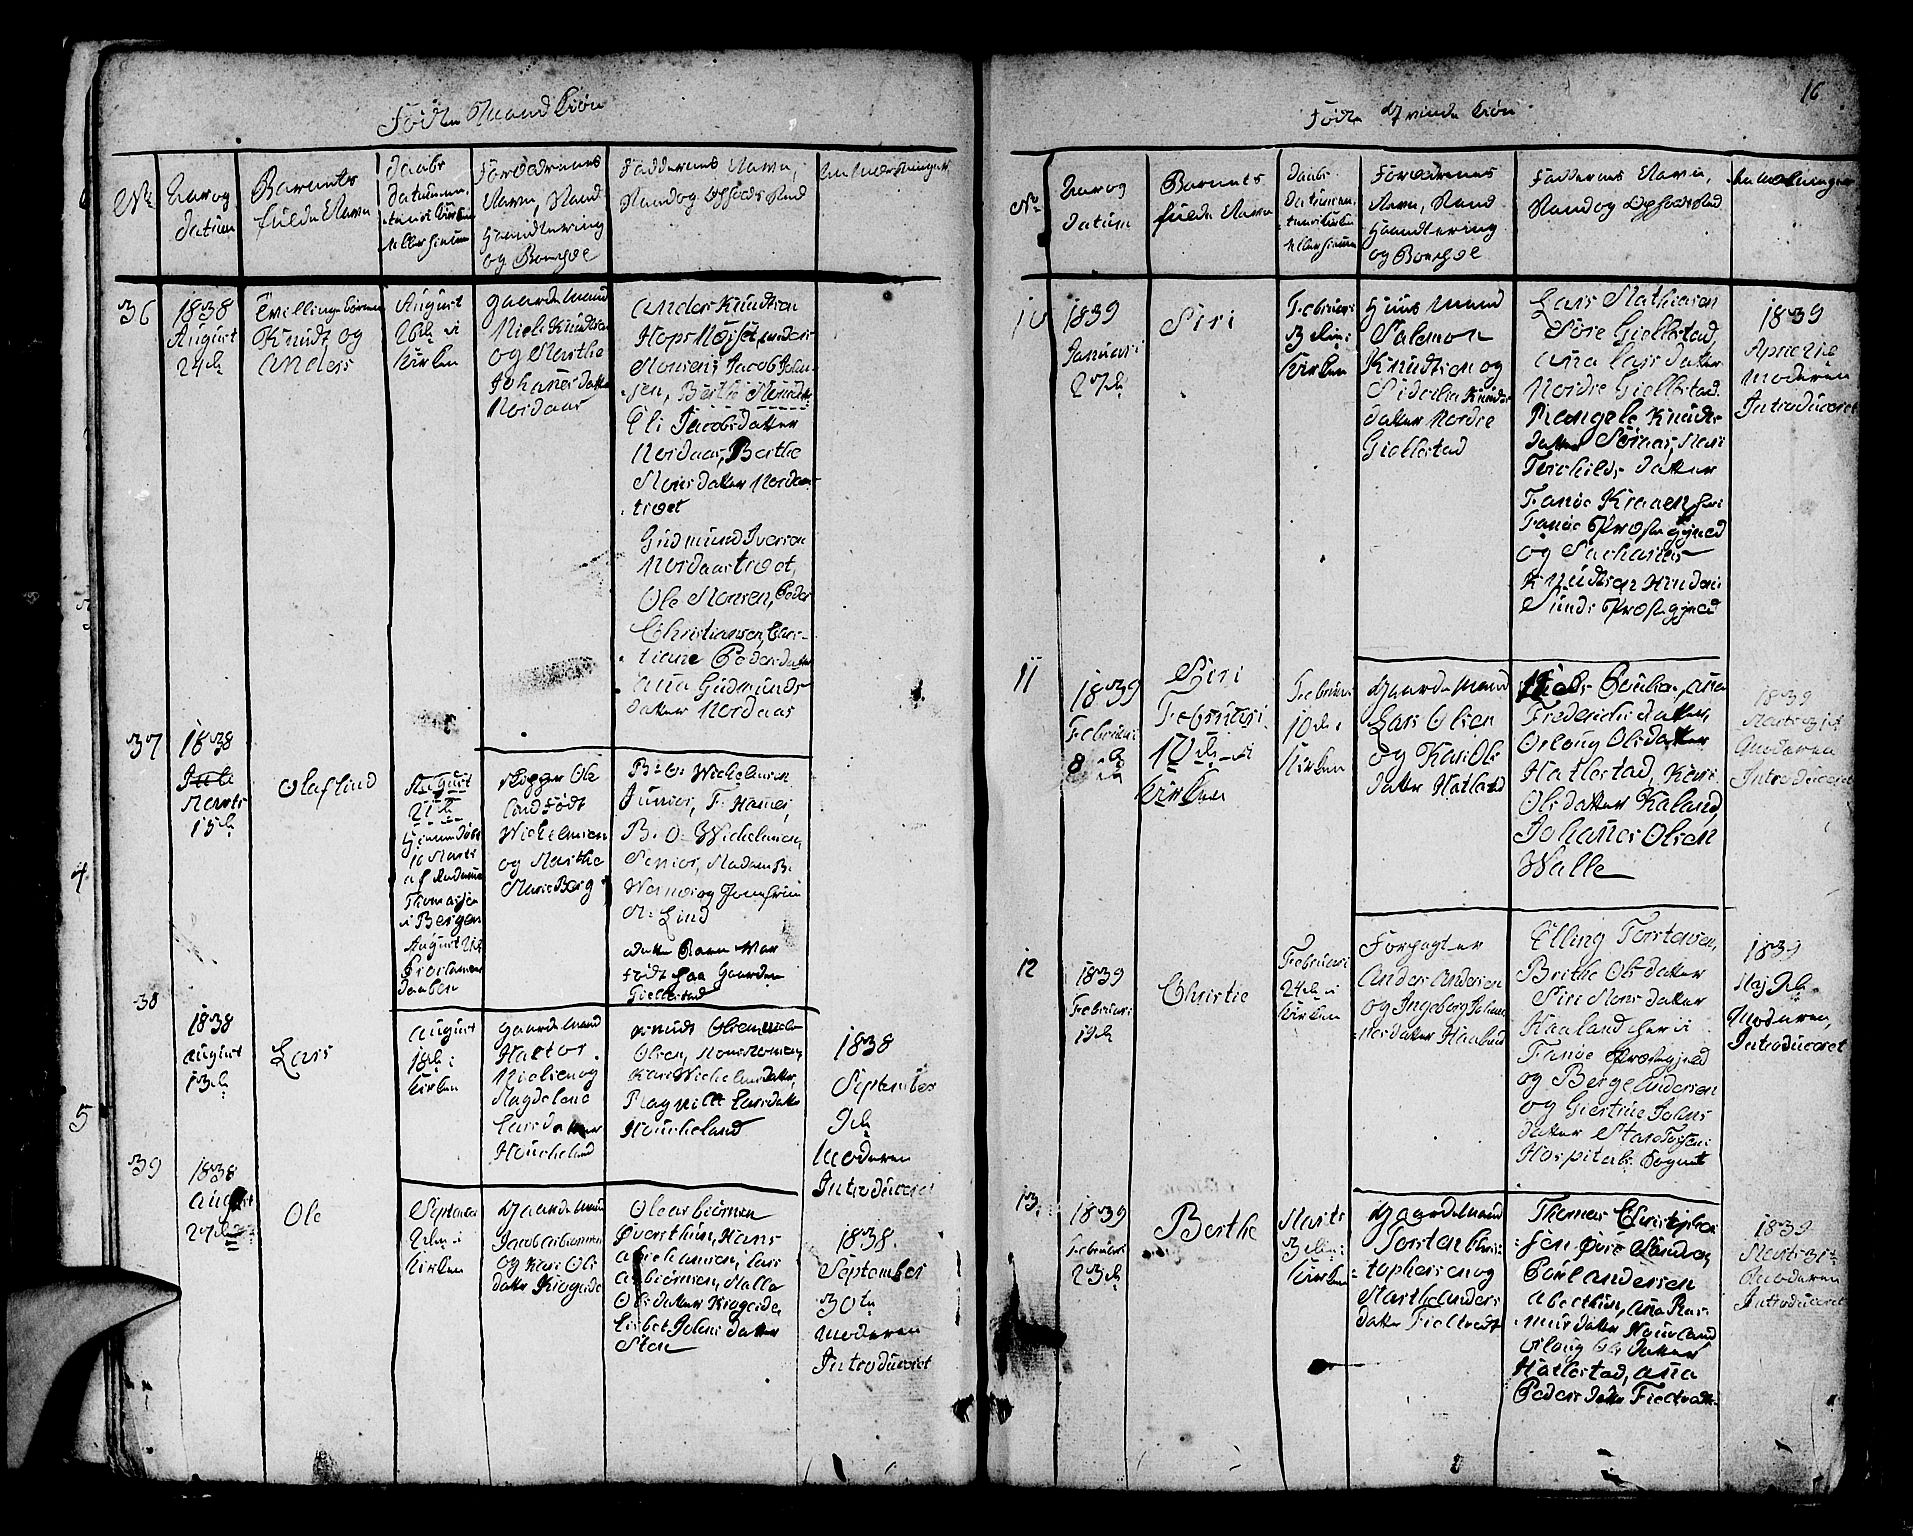 Fødte Mandkiøn
No
Aar og
datum
Barnets
fulde Navn
Daabs
datum en
-ten i Kirken
eller hiemme
Forældrenes
Navn, Stand
Haandtering
og Boepæl
Faddernes Navn,
Stand og Opholdsstæd
Anmærkninger
36
1838
August
24de
Tvillingebørnene
Knudt og
Anders
August
26de i
Kirken
Gaardemand
Niels Knudtsen
og Marthe
Johanesdatter
Nordaas
Anders Knudtsen
Monsen, Jacob Johan-
Eli Jacobsdatter
Nordaas, Berthe
Monsdatter Nordaas-
trøet
Gudmund Iversen
Nordaastrøet,
Ole Monsen, Peder
Christiansen,
-tiane Pedersdatter
Ana Gudmunds
datter Nordaas
37
1838
Marts
15de
Olaf Lind
August
21de
Hjemmedøbt
af
Thomassen
i Bergen
August 21de
daaben
Skipper Ole
Lind født
Wichelmsen
og Marthe
Marie Berg
B: O: Wichelmsen
Junior, F: Hamer,
B: O: Wichelmsen
Senior, Madam B.
M: Lind
dette Barn var
født paa Gaarden
Giellestad
38
1838
August
13de
Lars
August
18de i
Kirken
Gaardemand
Hactor
Nielsen og
Magdelene
Larsdatter
Houcheland
Olsen, Mons Monsen,
Kari Wichelmsdatter,
Ragnille Larsdatter
Houcheland
1838
September
9de
Moderen
Introduceret
39
1838
August
27de
Ole
September
2den i
Kirken
Gaardemand
Jacob Asbiørnsen
og Kari Ols
datter Krøgeide
Ole Asbiørnsen
Øvrethun, Hans
Asbiørnsen, Malla
Olsdatter Krøgeide,
Lisbet Johnsdatter
Steen
1838
September
30te
Moderen
Introduceret
16
Fødte Qvindekiøn
No
Aar og
datum
Barnets
fulde Navn
Daabs
datum en
-ten i Kirken
eller hiemme
Forældrenes
Navn, Stand
Haandtering
og Boepæl
Faddernes Navn,
Stand og Opholdsstæd
Anmærkninger
10
1839
Januari
27de
Siri
Februari
3die i
Kirken
Huusmand
Salemon
Knudtsen og
Sidselia Knuds
datter Nordre
Giellestad
Lars Mathiasen
Søre Giellestad,
Ana Larsdatter
Nordre Giellestad
Rangele Knudts
datter Søraas, Mari
Torchildsdatter
Fanøe Kraaen her i
Fanøe Præstegjæld
og Sacharias
Knudtsen Hindenes
Sunds Præstegjæld
1839
April 21de
Moderen
Introduceret
11
1839
Februari
8de
Siri
Februari
10de i
Kirken
Februari
10de i
Kirken
Gaardemand
Lars Olsen
og Kari Ols
datter Hatlestad
Niels Poulsen, Ana
Frederichsdatter,
Orloug Olsdatter
Hatlestad, Kari
Olsdatter Kaland
Johanes Olsen
Walle
1839
Marts 31te
Moderen
Introduceret
12
1839
Februari
19de
Christie
Februari
24de i
Kirken
Forpagter
Anders Andersen
og Ingeborg Johan-
-nesdatter Haaland
Elling Torstensen,
Brithe Olsdatter
Siri Monsdatter
Haaland her i
Fanøe Præstegjæld
og Berge Andersen
og Giertrue Johns
datter
Hospitals Sognet
1839
Maj 9de
Moderen,
Introduceret
13
1839
Februari
23de
Berthe
Marts
3die i
Kirken
Gaardemand
Torsten Chris-
-tophersen og
Marthe Anders
datter Fieltvedt
Thomas Christopher-
-sen Øvre
Poul Andersen
Ana Ras-
-musdatter Houvland
Orloug Olsdatter
Hatlestad, Ana
Pedersdatter Fieltvedt
1839
Marts 31te
Moderen
Introduceret
4
5